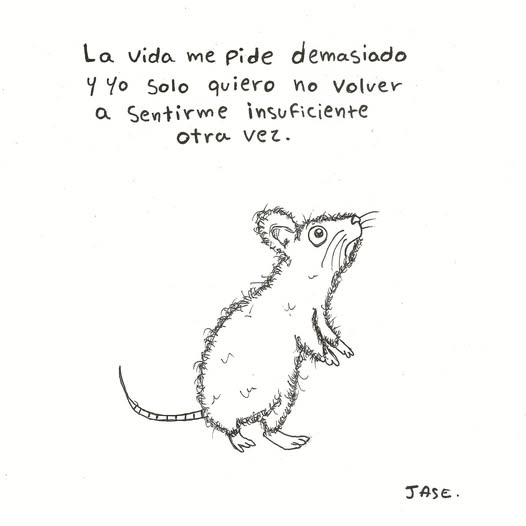 La vida me pide demasiado
y yo solo quiero no volver
a sentirme insuficiente
otra vez.
JASE.